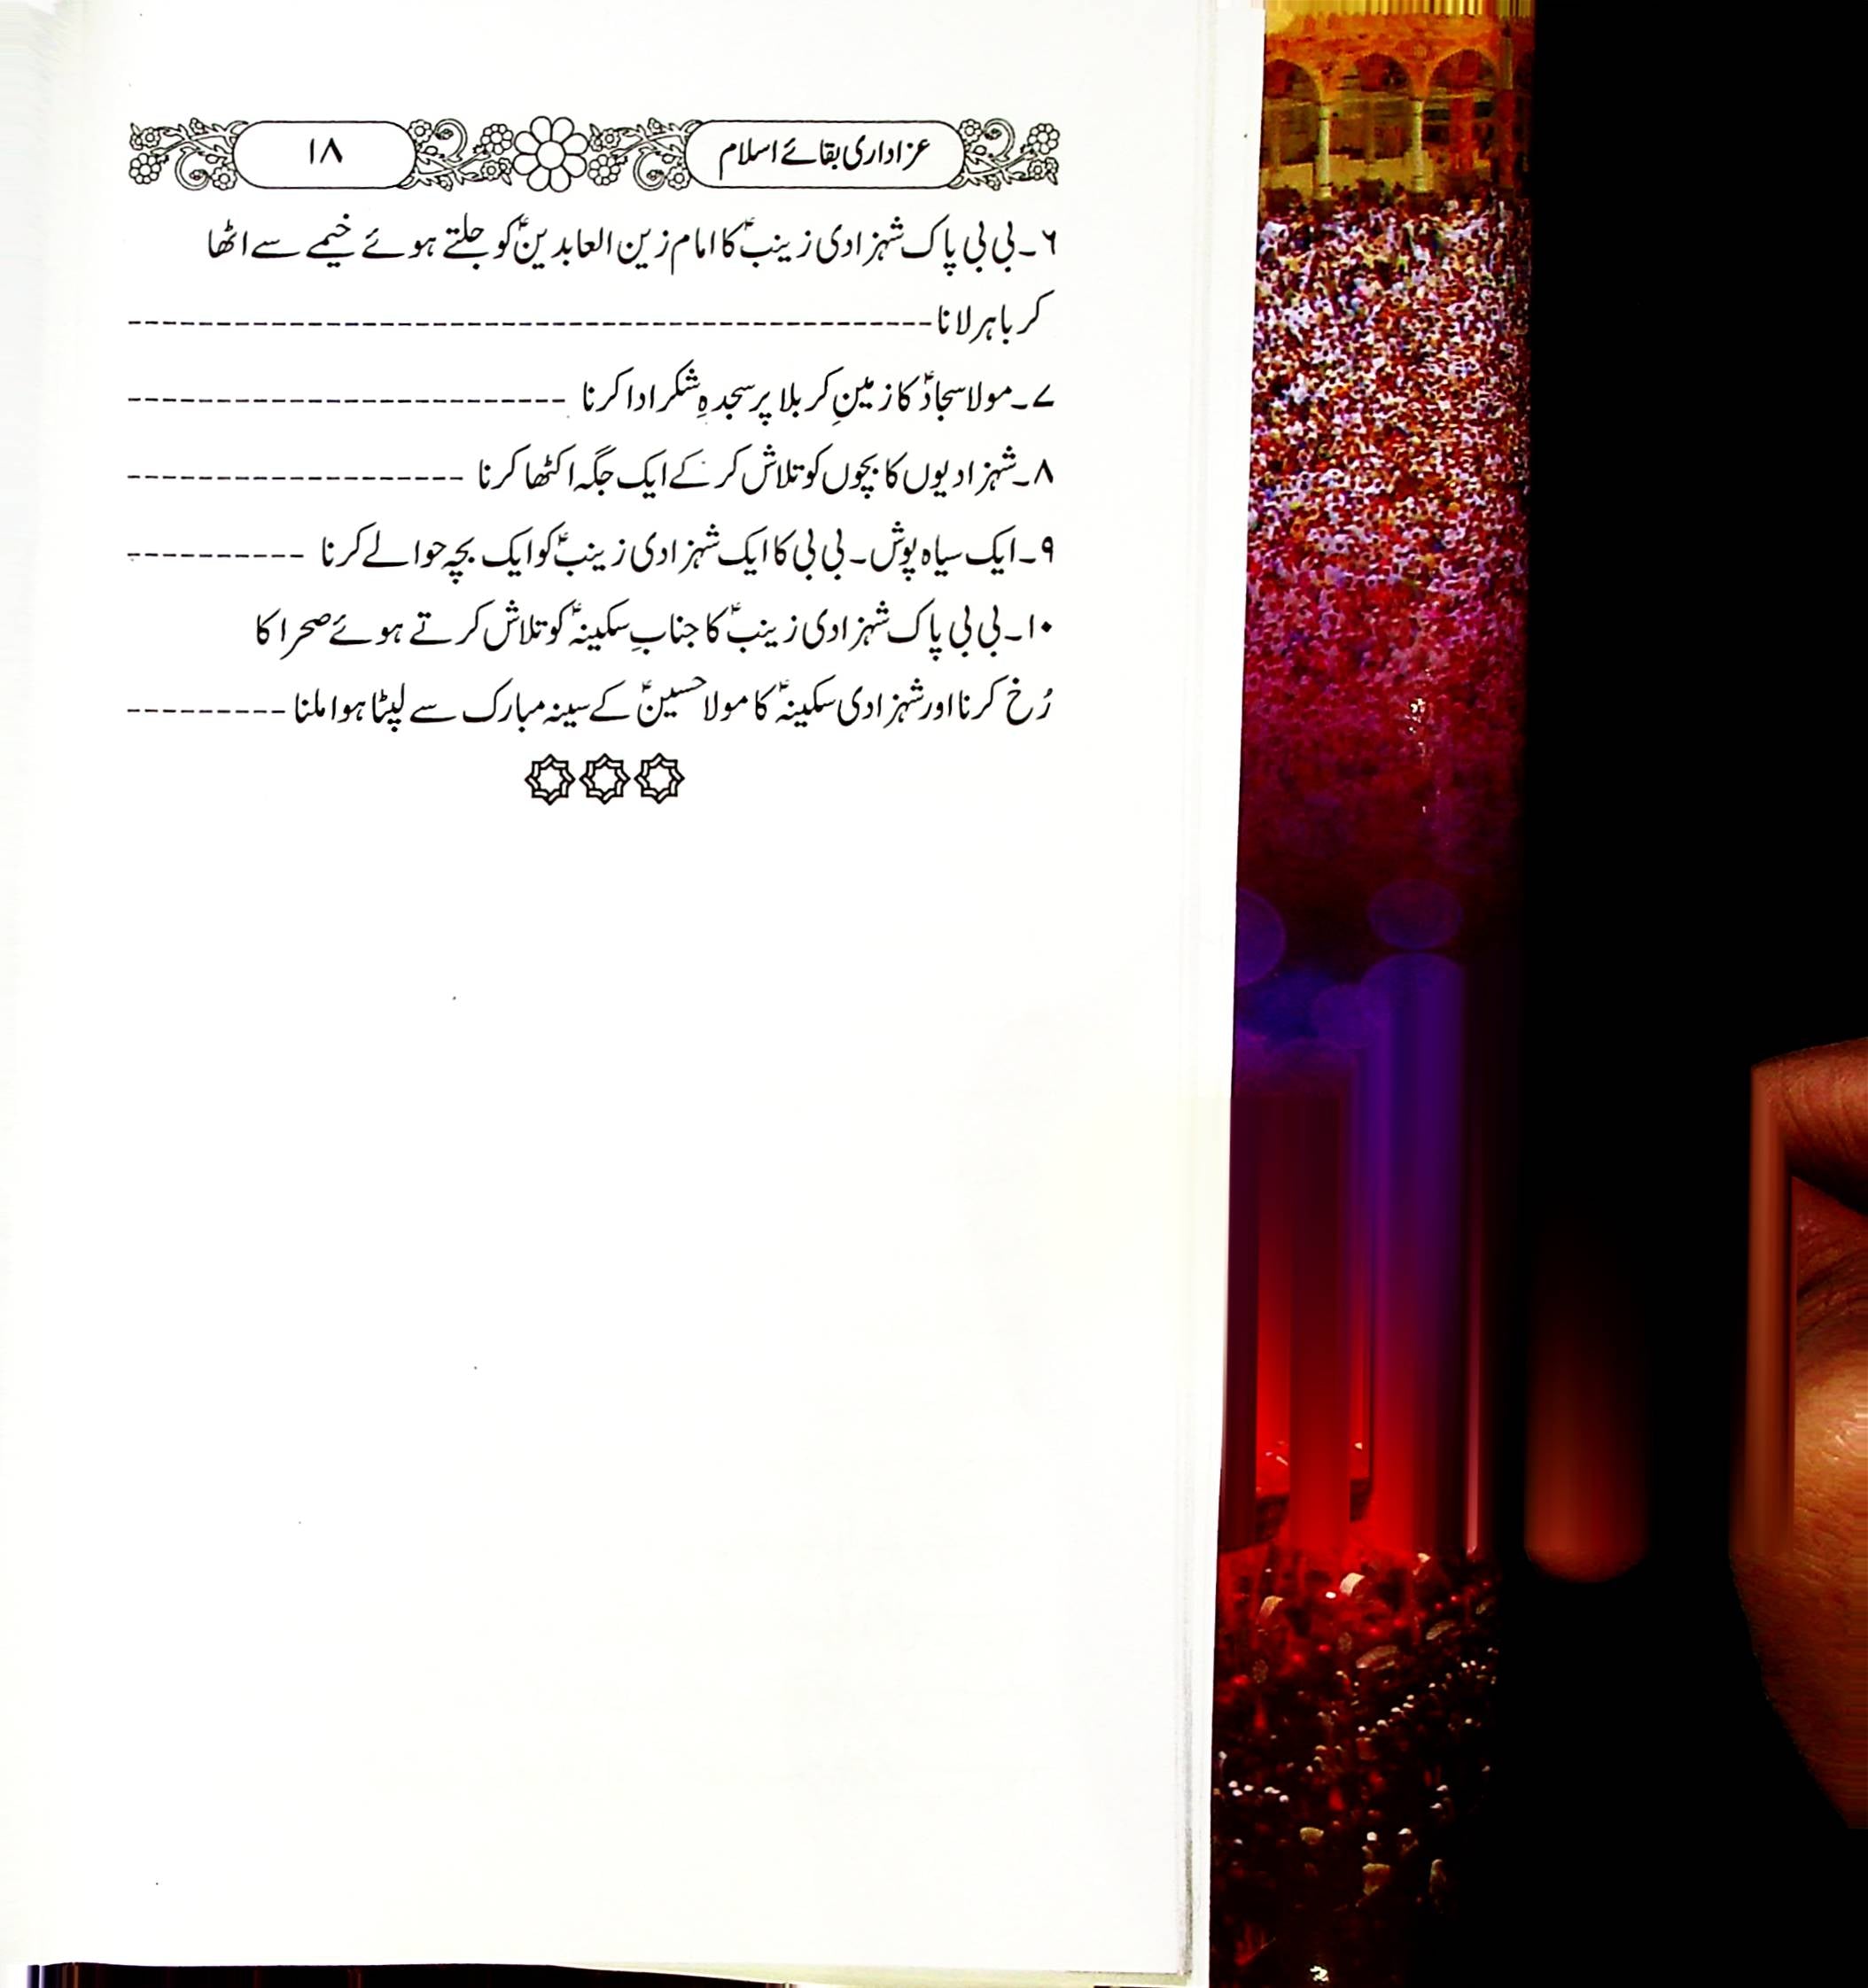 عزاداری بقائے اسلام ۱۸
۶۔بی بی پاک شہزادی زینبؑ کا امام زین العابدینؑ کو جلتے ہوئے خیمے سے اٹھا
کر باہر لانا------------------------------------------------
۷۔مولا سجادؑ کا زمینِ کربلا پر سجدہِ شکر ادا کرنا--------------------------
۸۔شہزادیوں کا بچوں کو تلاش کر کے ایک جگہ اکٹھا کرنا--------------------
۹۔ایک سیاہ پوش۔بی بی کا ایک شہزادی زینبؑ کو ایک بچہ حوالے کرنا-----------
۱۰۔بی بی پاک شہزادی زینبؑ کا جنابِ سکینہؑ کو تلاش کرتے ہوئے صحرا کا
رُخ کرنا اور شہزادی سکینہؑ کا مولا حسینؑ کے سینہ مبارک سے لپٹا ہوا ملنا---------